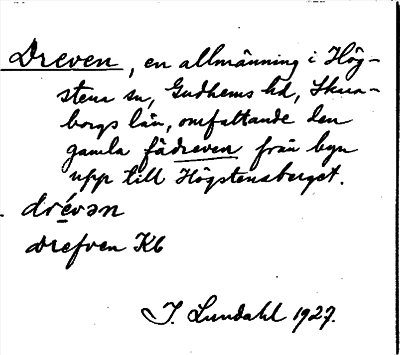 Dreven, en allmänning i Hög-
stena sn, Gudhems hd, Skara-
borgs län, omfattande den
gamla fädreven från byn
upp till Högstensberget.
drévən
drefven Kb
I. Lundahl 1927.